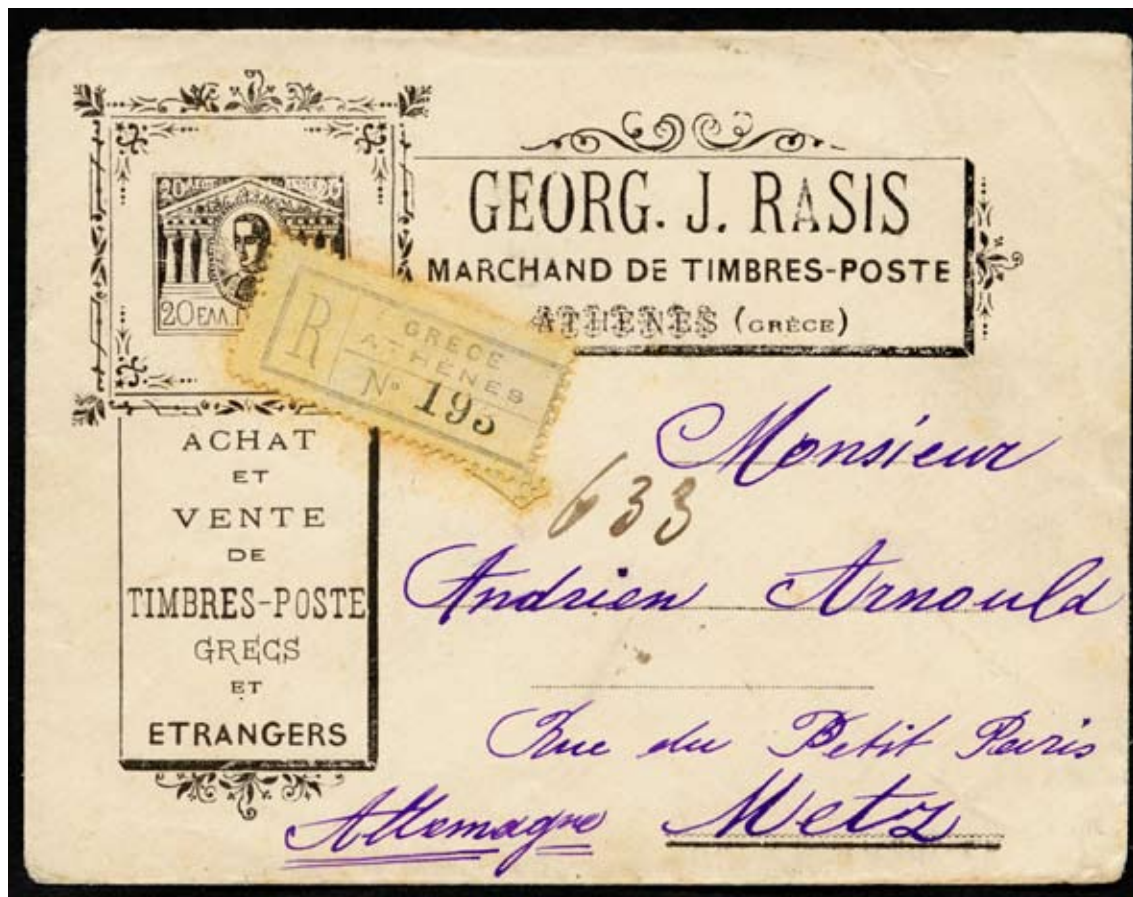 GEORG. J. RASIS
MARCHAND DE TIMBRES-POSTE
ATHENES (GRÈCE)
20
20
R
GRÈCE
ATHÈNES
No 193
ACHAT
ET
VENTE
DE
TIMBRES-POSTE
GRECS
ET
ETRANGERS
633
Monsieur
Andrien Arnould
Rue du Petit Paris
Allemagne Metz